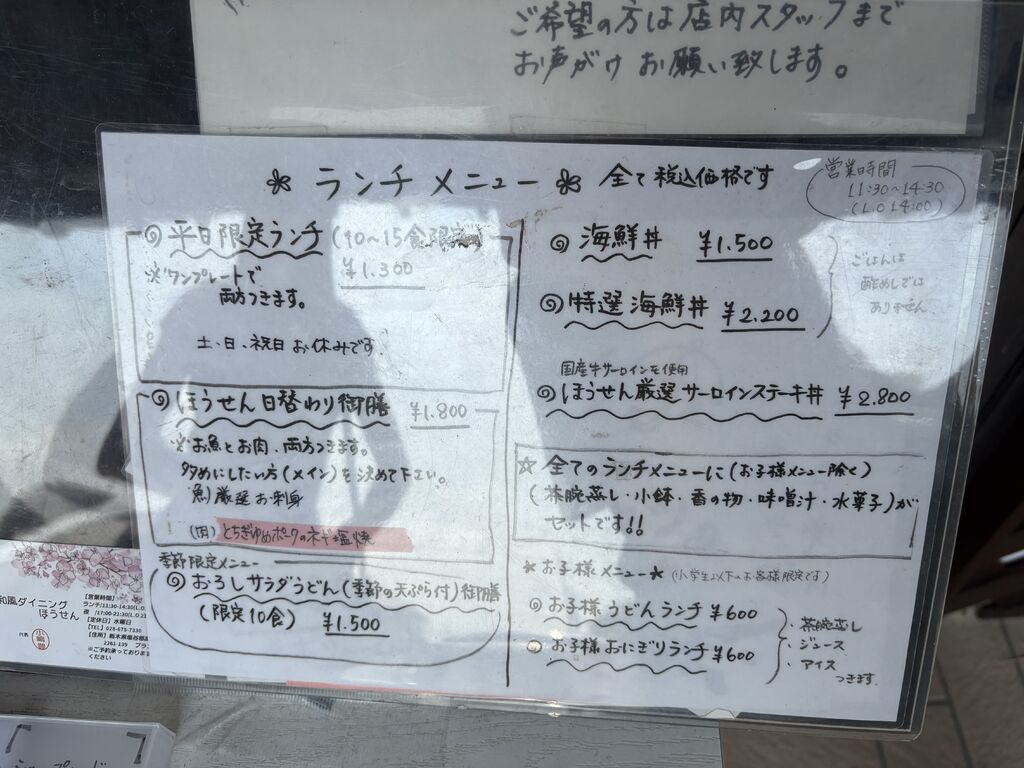 ご希望の方は店内スタッフまで
お声がけお願い致します。
ランチメニュー 全て税込価格です
営業時間
11:30~14:30
(L.O 14:00)
平日限定ランチ (10~15食限定)
¥1.300
※ワンプレートで
両方つきます。
土、日、祝日お休みです。
ほうせん日替わり御膳 ¥1.800
※お魚とお肉、両方つきます。
多めにしたい方(メイン)を決めて下さい。
魚)厳選お刺身
(肉)とちぎゆめポークのネギ塩焼
季節限定メニュー
おろしサラダうどん(季節の天ぷら付)御膳
(限定10食) ¥1.500
海鮮丼 ¥1.500
特選海鮮丼 ¥2.200
ごはんは
酢めしでは
ありません。
国産牛サーロインを使用
ほうせん厳選サーロインステーキ丼 ¥2.800
☆全てのランチメニューに(お子様メニュー除く)
(茶腕蒸し・小鉢・香の物・味噌汁・水菓子)が
セットです!!
★お子様メニュー★ (小学生以下のお客様限定です)
お子様うどんランチ ¥600
お子様おにぎりランチ ¥600
・茶腕蒸し
・ジュース
・アイス
つきます。
和風ダイニング
ほうせん
【営業時間】
ランチ/11:30-14:30(L.O.
夜 /17:00-21:30(L.O.
【定休日】水曜日
【TEL】028-675-7330
【住所】栃木県塩谷郡
2261-135
※ご予約承っております
ください